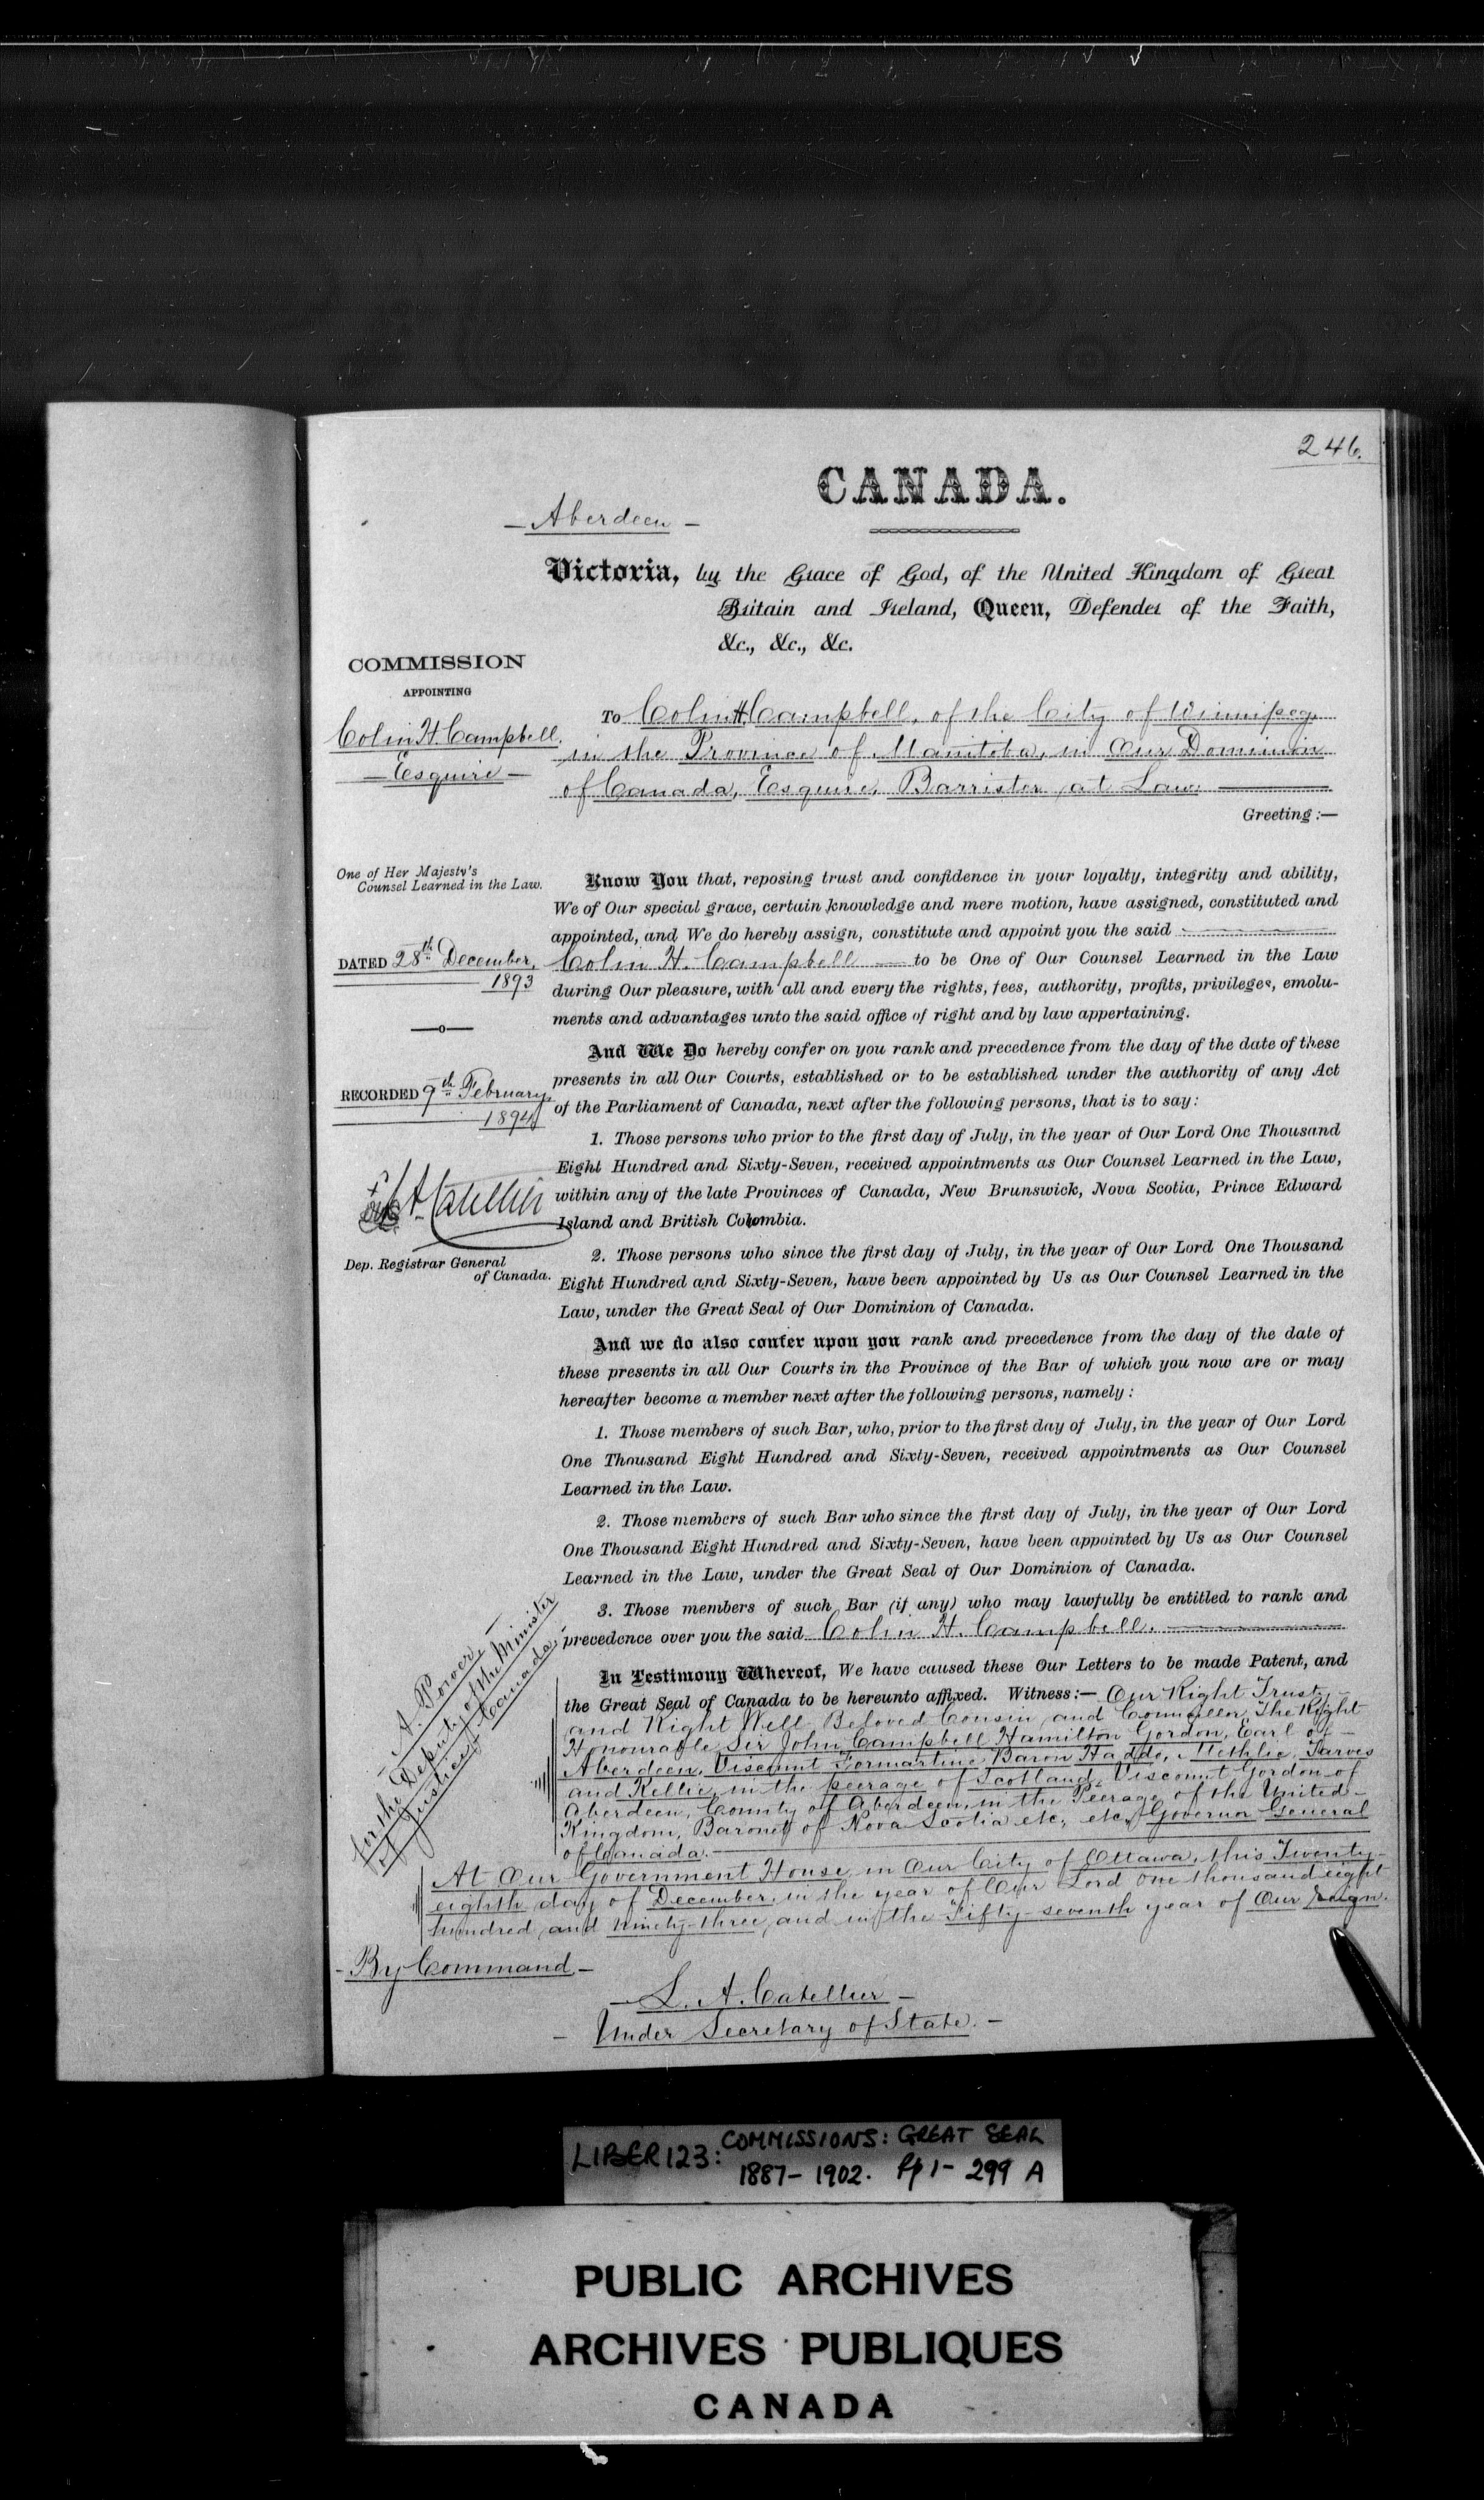 246.
CANADA.
- Aberdeen -
Victoria, by the Grace of God, of the United Kingdom of Great
Britain and Ireland, Queen, Defender of the Faith,
&c., &c., &c.
COMMISSION
APPOINTING
Colin H. Campbell.
- Esquire -
To Colin H. Campbell, of the City of Winnipeg,
in the Province of Manitoba, in Our Dominion
of Canada, Esquire, Barrister at Law.
Greeting :—
One of Her Majesty's
Counsel Learned in the Law.
DATED 28th December,
1893
—o—
RECORDED 9th February,
1894
L A Catellier
Dep. Registrar General
of Canada.
Know You that, reposing trust and confidence in your loyalty, integrity and ability,
We of Our special grace, certain knowledge and mere motion, have assigned, constituted and
appointed, and We do hereby assign, constitute and appoint you the said
Colin H. Campbell — to be One of Our Counsel Learned in the Law
during Our pleasure, with all and every the rights, fees, authority, profits, privileges, emolu-
ments and advantages unto the said office of right and by law appertaining.
And We Do hereby confer on you rank and precedence from the day of the date of these
presents in all Our Courts, established or to be established under the authority of any Act
of the Parliament of Canada, next after the following persons, that is to say:
1. Those persons who prior to the first day of July, in the year of Our Lord One Thousand
Eight Hundred and Sixty-Seven, received appointments as Our Counsel Learned in the Law,
within any of the late Provinces of Canada, New Brunswick, Nova Scotia, Prince Edward
Island and British Colombia.
2. Those persons who since the first day of July, in the year of Our Lord One Thousand
Eight Hundred and Sixty-Seven, have been appointed by Us as Our Counsel Learned in the
Law, under the Great Seal of Our Dominion of Canada.
And we do also confer upon you rank and precedence from the day of the date of
these presents in all Our Courts in the Province of the Bar of which you now are or may
hereafter become a member next after the following persons, namely :
1. Those members of such Bar, who, prior to the first day of July, in the year of Our Lord
One Thousand Eight Hundred and Sixty-Seven, received appointments as Our Counsel
Learned in the Law.
2. Those members of such Bar who since the first day of July, in the year of Our Lord
One Thousand Eight Hundred and Sixty-Seven, have been appointed by Us as Our Counsel
Learned in the Law, under the Great Seal of Our Dominion of Canada.
3. Those members of such Bar (if any) who may lawfully be entitled to rank and
precedence over you the said Colin H. Campbell.
- A. Power, -
for the Deputy of the Minister
of Justice, Canada.
In Testimony Whereof, We have caused these Our Letters to be made Patent, and
the Great Seal of Canada to be hereunto affixed. Witness:— Our Right Trusty
and Right Well Beloved Cousin and Councillor The Right
Honourable Sir John Campbell Hamilton Gordon, Earl of
Aberdeen, Viscount Formartine Baron Haddo, Methlic, Tarves
and Kellie, in the peerage of Scotland, Viscount Gordon of
Aberdeen, County of Aberdeen, in the Peerage of the United
Kingdom, Baronet of Nova Scotia etc., etc., Governor General
of Canada.
At Our Government House in Our City of Ottawa, this Twenty-
eighth day of December, in the year of Our Lord one thousand eight
hundred and ninety-three, and in the Fifty-seventh year of Our reign.
- By Command -
- L. A. Catellier -
- Under Secretary of State. -
LIBER 123: COMMISSIONS: GREAT SEAL
1887-1902. Pp 1-299 A
PUBLIC ARCHIVES
ARCHIVES PUBLIQUES
CANADA